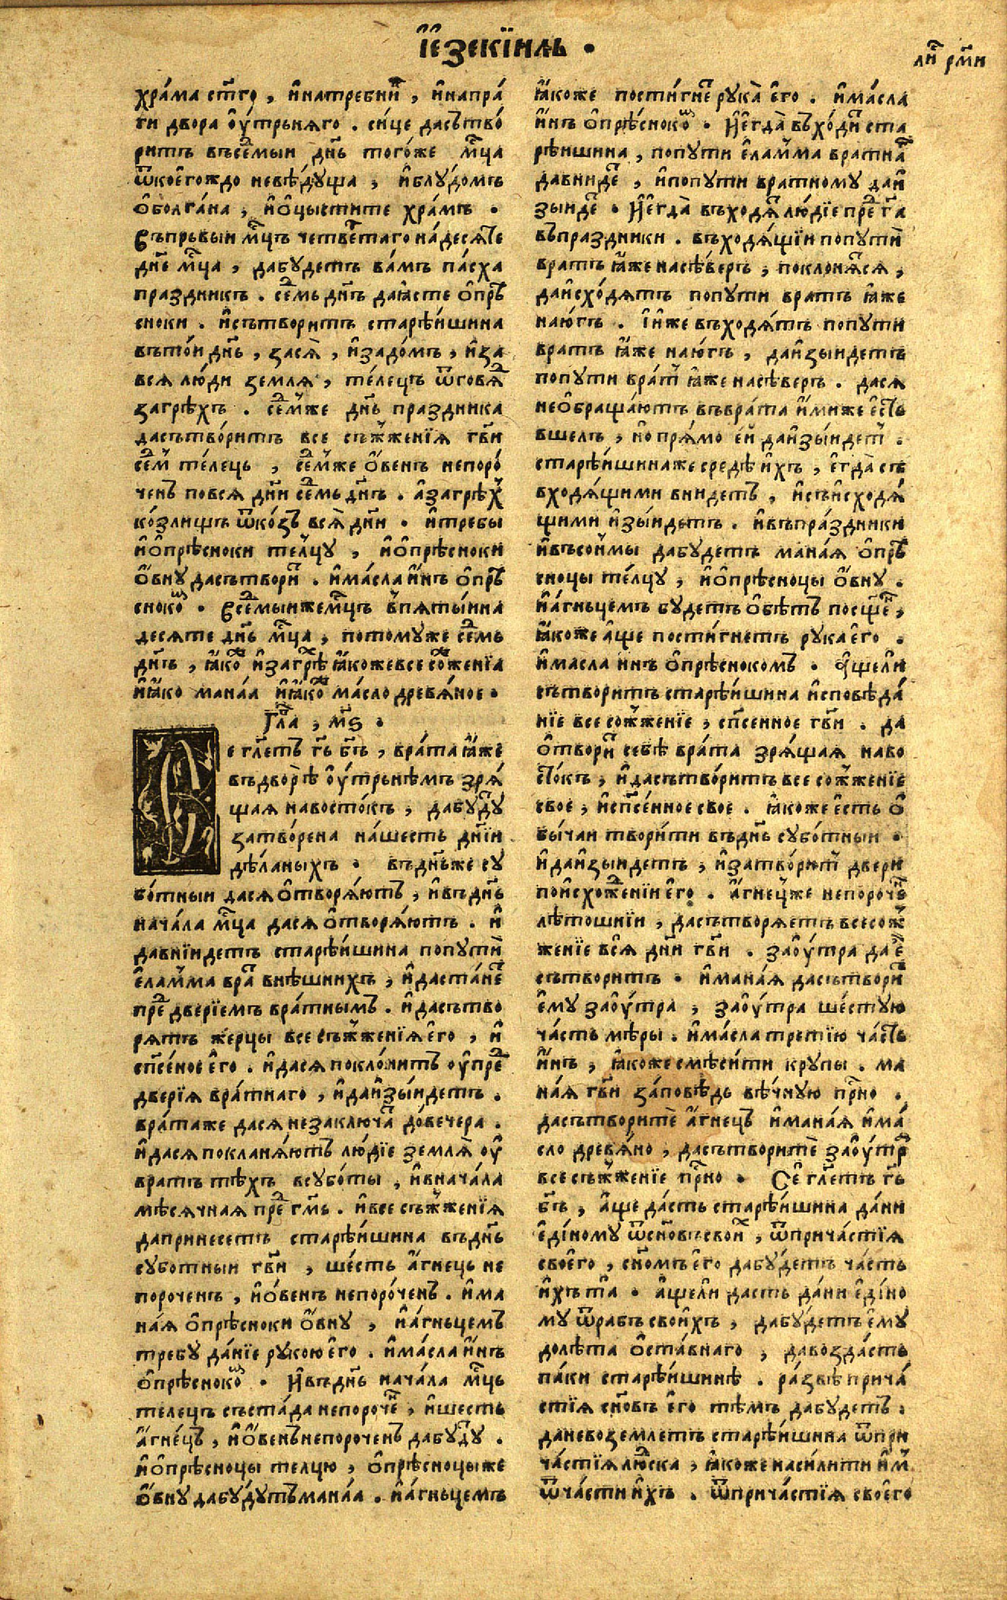 І҆е҆зекїилъ .
ли̑ рм҃и
хра́ма ст҃го , и҆натребни̑ , и҆напра́
ги двора о҆у҆́трьняго . си́це дасътво́
ритъ въсе́мыи дн҃ь того́же мц҃а
ѿкоего́ждо невѣ́дуща , и҆блу́домъ
о҆болга́на , и҆о҆цы́стите храмъ .
Въпрьвыи мц҃ъ четве́таго на́десѧте
дн҃е мц҃а , дабу́детъ ва́мъ па́сха
праздникъ . се́мь дн҃ъ даꙗ́сте о҆прѣ
сноки . и҆сътворитъ старѣ́ишина
вътои дн҃ь , засѧ̀ , и҆задо́мъ , и҆за
всѧ лю́ди землѧ̀ , те́лецъ ѿговѧ́
загрѣхъ . се́мже дн҃ь праздника
дасътво́ритъ все съж҃женїѧ гв҃и
се́м те́лець , се́мже о҆́венъ непоро́
ченъ повсѧ дн҃и се́мь дн҃ъ . а҆загрѣ́х
ко́злищъ ѿко́зъ всѧ̀ дн҃и . и҆требы
и҆о҆прѣ́сноки телцу , и҆о҆прѣ́сноки
о҆́вну дасътвори̑ . и҆ма́сла и҆́нъ о҆прѣ
сноко̑ . Всемыижемц҃ъ в҆пѧты́ина
десѧте дн҃ь мц҃а , потомуже се́мь
дн҃ъ , ꙗ҆ко̑ и҆загрѣ̑ ꙗ҆кожевсе со̑женїа
и҆ꙗ҆ко манаа и҆ꙗ҆ко̑ ма́сло древѧ́ное .
Гл҃а , м҃ѕ .
Се гл҃етъ гь҃ бг҃ъ , врата ꙗ҆́же
въдворѣ̀ о҆у҆́трьнѣмъ зрѧ́
щаѧ навосто́къ , дабу̑ду
затво́рена на́шесть дн҃їи
дѣ́ланыхъ . въдн҃ьже су
бо́тныи дасѧ о҆творѧ́ютъ , и҆въдн҃ь
нача́ла мц҃а дасѧ о҆творѧ́ютъ . и҆
давнїидетъ старѣ́ишина попути̑
е҆ла́мма вра̑ внѣшнихъ , и҆даста́не̑
пре̑ две́рїемъ вра́тнымъ . и҆дасътво
рѧтъ же́рцы все съж҃женїѧ е҆го̀ , и҆
сп҃се́ное е҆го . и҆дасѧ покло́нитъ о҆у҆пре̑
две́рїѧ вра́тнаго , и҆даи҆зы́идетъ .
вра́таже дасѧ незаключа̑ до́вечера .
и҆дасѧ поклана́ютъ лю́дїе землѧ̀ о҆у҆
вратъ тѣхъ всубо́ты , и҆внача́ла
мѣсѧчнаѧ пре̑ гм҃ь . и҆все съж҃женїѧ
дапринесетъ старѣ́ишина въдн҃ь
суботныи гв҃и , ше́сть а҆́гнець не
порочень , и҆о҆́венъ непоро́ченъ . и҆ма
на́ѧ о҆прѣ́сноки о҆́вну , и҆а҆́гньцемъ
требу да́нїе рукою е҆го . и҆ма́сла и҆́нъ
о҆прѣ́сноко̑ . И҆въдн҃ь нача́ла мц҃ь
телець съста́да непороче̑ , и҆шесть
а҆́гне́цъ , и҆о҆венънепороченъ дабу̑ду .
и҆о҆прѣ́сноцы телцю , о҆прѣ́сноцыже
о҆́вну дабу́дутъманаа . и҆а҆́гньцемъ
ꙗ҆коже пости́гне̑ рука̀ е҆го . и҆ма́сла
и҆́нъ о҆прѣ́сноко̑ . И҆е҆гда̀ въхо́ди̑ ста
рѣ́ишина , попути е҆ла́мма вратна̑
давниде̑ , и҆попути вратному даи҆
зыиде̑ . И҆е҆гда̀ въходѧ̑ лю́дїе пре̑ гм҃а
въпраздники . въходѧ́щїи попути̑
вратъ ꙗ҆же насѣ́веръ , поклонѧ́сѧ ,
даи҆схо́дѧтъ попути вратъ ꙗ҆́же
наю́гъ . и҆и҆́же въходѧ́тъ попути
вратъ ꙗ҆́же наю́гъ , даи҆зыидетъ
попути врат̑ ꙗ҆́же насѣ́веръ . дасѧ
нео҆браща́ютъ въврата и҆́миже е҆́сть
вшелъ , но прѧ́мо е҆й даи҆зы́идет̑ .
старѣ́ишинаже средѣ̀ и҆́хъ , е҆гда̀ съ
входѧ́щими внидетъ , и҆съи҆сходѧ́
щими и҆зы́идетъ . и҆въпра́здники
и҆въсо́имы дабу́детъ мана́ѧ о҆прѣ
сноцы те́лцу , и҆о҆прѣ́сноцы о҆́вну .
и҆а҆́гньцемъ будетъ о҆бѣтъ посще̑ ,
ꙗ҆коже а҆́ще пости́гнетъ рука е҆го .
и҆масла и҆нъ о҆прѣ́снокомъ . А҆щели
сътворитъ старѣ́ишина и҆сповѣда́
нїе все сож҃женїе , сп҃сенное гв҃и . да
о҆твори̑ себѣ̀ врата зрѧ́щаѧ наво
сто́къ , и҆дасътво́ритъ все сож҃женїе
свое , и҆сп҃се́нное свое . ꙗ҆коже е҆сть о҆
бы́чаи твори́ти въдн҃ь субо́тныи .
и҆даи҆зыидетъ , и҆затвори́т̑ двери
пои҆схоже̑нїи е҆го̀ . а҆́гнеце̑же непороч̑ъ
лѣтошнїи , дасътворѧетъ всесож҃
женїе всѧ̀ дн҃и гв҃и . зао҆у҆́тра да е҆
сътворитъ . и҆мана́ѧ дасътвори̑
е҆му зао҆у҆́тра , зао҆у҆́тра ше́стую
ча́сть мѣры . и҆ма́сла третїю ча́сть
и҆́нъ , ꙗ҆коже смѣси́ти крупы . ма
на́ѧ гв҃и за́повѣдь вѣ́чную прн҃о .
дасътворитѐ а҆́гнецъ и҆мана́ѧ и҆ма́
сло древѧ́но , дасътворитѐ зао҆у҆́тр̑
все съж҃женїе прн҃о . Се гл҃етъ гь҃
бг҃ъ , а҆́ще да́сть старѣ́ишина да́ни
е҆ди́ному ѿсн҃овъсвои̑ , ѿприча́стїѧ
свое́го , сн҃омъ е҆го дабу́детъ часть
и҆́хъ та̀ . а҆щели дасть да́ни е҆ди́но
му ѿрабъ свои́хъ , дабу́детъ е҆му
долѣта о҆ста́внаго , давозда́сть
па́ки старѣ́ишинѣ . ра́звѣ прича́
стїѧ сн҃овъ е҆го тѣмъ дабу́детъ .
даневоземлетъ старѣ́ишина ѿпри
ча́стїѧ лю̑ска , ꙗ҆коже наси́лити и҆м̑
ѿча́сти и҆́хъ . ѿприча́стїѧ своего